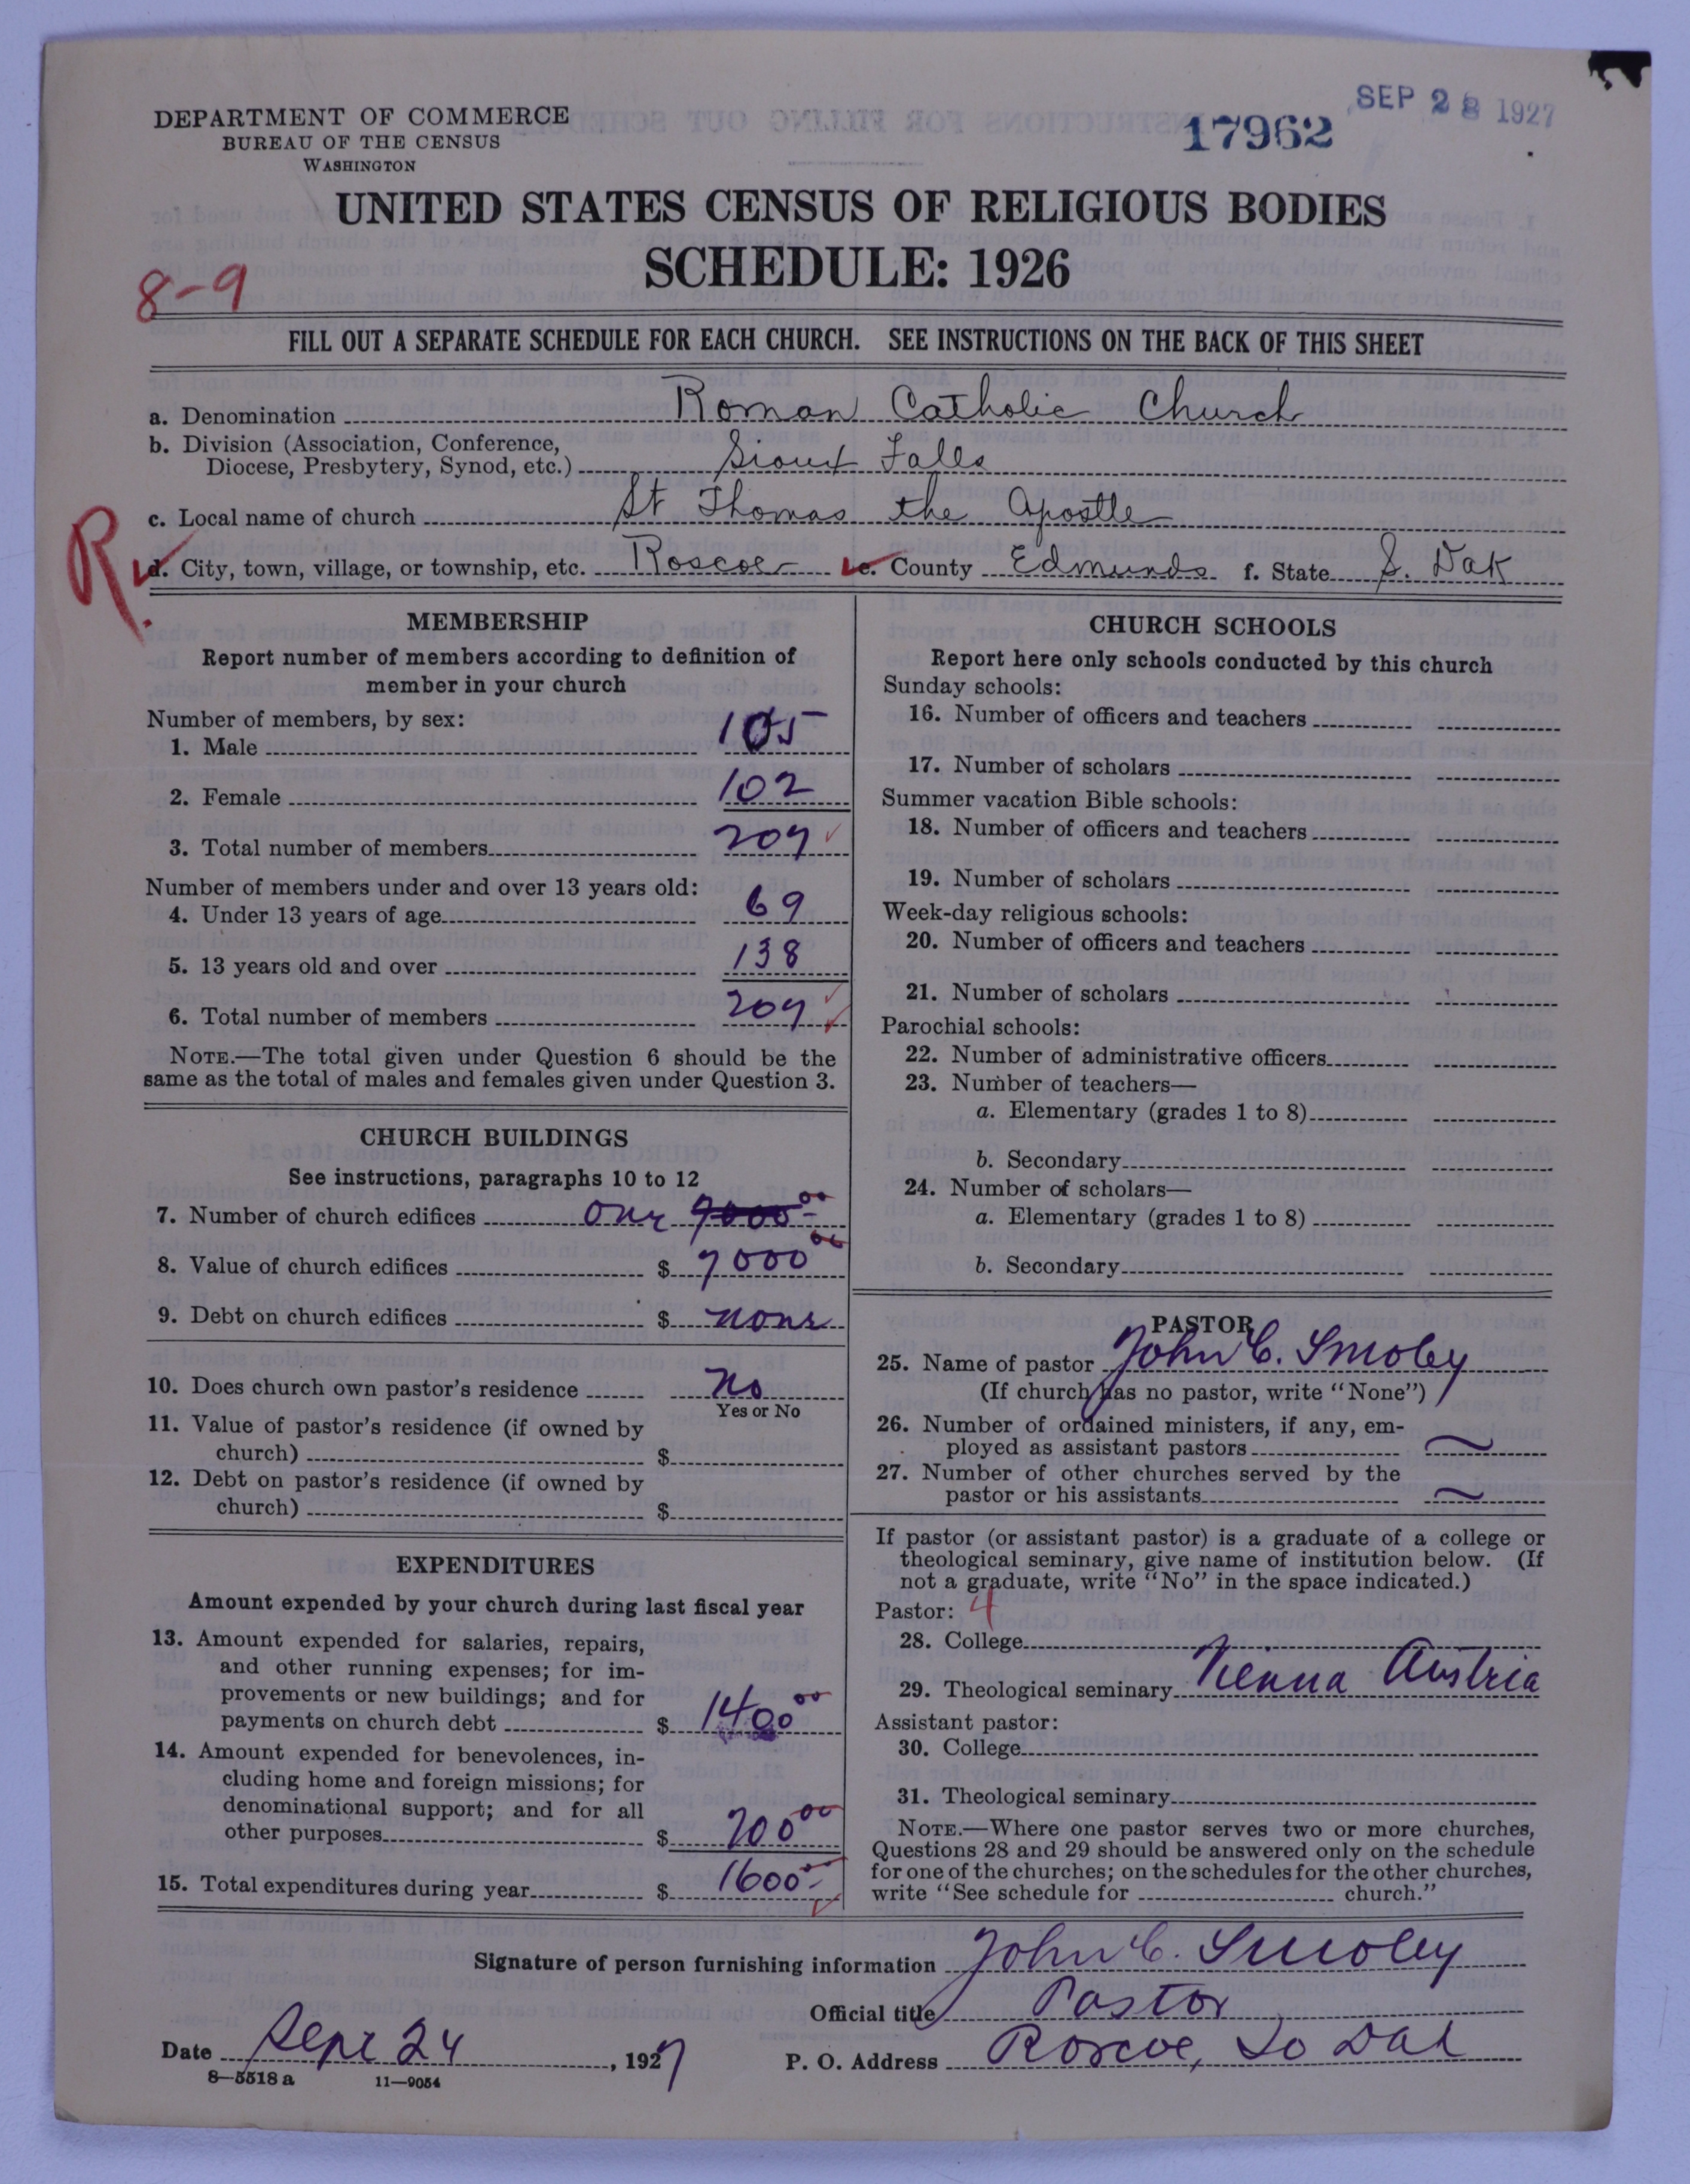 DEPARTMENT OF COMMERCE
BUREAU OF THE CENSUS
WASHINGTON
17962
SEP 28 1927
UNITED STATES CENSUS OF RELIGIOUS BODIES
SCHEDULE: 1926
8-9
FILL OUT A SEPARATE SCHEDULE FOR EACH CHURCH. SEE INSTRUCTIONS ON THE BACK OF THIS SHEET
a. Denomination Roman Catholic Church
b. Division (Association, Conference,
Diocese, Presbytery, Synod, etc.) Sioux Falls
c. Local name of church St Thomas the Apostle
R.
d. City, town, village, or township, etc. Roscoe e. County Edmunds f. State S. Dak
MEMBERSHIP
Report number of members according to definition of
member in your church
Number of members, by sex:
1. Male 105
2. Female 102
3. Total number of members 207
Number of members under and over 13 years old:
4. Under 13 years of age 69
5. 13 years old and over 138
6. Total number of members 207
NOTE.—The total given under Question 6 should be the
same as the total of males and females given under Question 3.
CHURCH BUILDINGS
See instructions, paragraphs 10 to 12
7. Number of church edifices One 7000 00
8. Value of church edifices $ 7000 00
9. Debt on church edifices $ none
10. Does church own pastor's residence no
Yes or No
11. Value of pastor's residence (if owned by
church) $
12. Debt on pastor's residence (if owned by
church) $
EXPENDITURES
Amount expended by your church during last fiscal year
13. Amount expended for salaries, repairs,
and other running expenses; for im-
provements or new buildings; and for
payments on church debt $ 1400 00
14. Amount expended for benevolences, in-
cluding home and foreign missions; for
denominational support; and for all
other purposes $ 200 00
15. Total expenditures during year $ 1600
CHURCH SCHOOLS
Report here only schools conducted by this church
Sunday schools:
16. Number of officers and teachers
17. Number of scholars
Summer vacation Bible schools:
18. Number of officers and teachers
19. Number of scholars
Week-day religious schools:
20. Number of officers and teachers
21. Number of scholars
Parochial schools:
22. Number of administrative officers
23. Number of teachers—
a. Elementary (grades 1 to 8)
b. Secondary
24. Number of scholars—
a. Elementary (grades 1 to 8)
b. Secondary
PASTOR
25. Name of pastor John C. Smoley
(If church has no pastor, write "None")
26. Number of ordained ministers, if any, em-
ployed as assistant pastors ~
27. Number of other churches served by the
pastor or his assistants ~
If pastor (or assistant pastor) is a graduate of a college or
theological seminary, give name of institution below. (If
not a graduate, write "No" in the space indicated.)
Pastor: 4
28. College
29. Theological seminary Vienna Austria
Assistant pastor:
30. College
31. Theological seminary
NOTE.—Where one pastor serves two or more churches,
Questions 28 and 29 should be answered only on the schedule
for one of the churches; on the schedules for the other churches,
write "See schedule for church."
Signature of person furnishing information John C. Smoley
Official title Pastor
Date Sept 24, 1927
P. O. Address Roscoe, So Dak
8—5518 a 11—9054